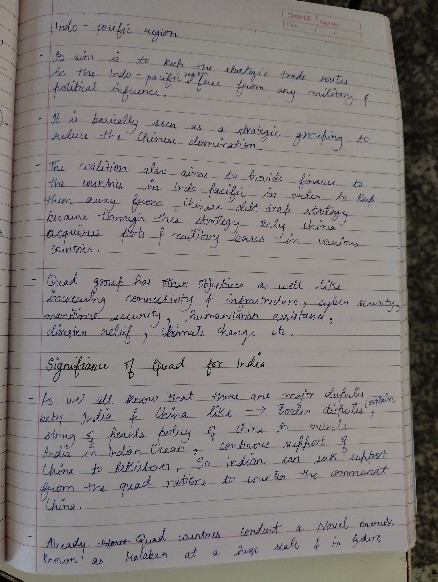 Indo-pacific region
- Its aim is to keep the strategic trade routes
in the Indo-pacific region free from any military &
political influence.
- It is basically seen as a strategic grouping to
reduce the Chinese domination.
- The coalition also aims to provide finance to
the countries in Indo Pacific in order to keep
them away from Chinese debt trap strategy
because through this strategy only China
acquires ports & military bases in various
countries.
- Quad group has other objectives as well like
increasing connectivity & infrastructure, cyber security,
maritime security, humanitarian assistance,
disaster relief, climate change etc.
Significance of Quad for India
- As we all know that there are major disputes
India & China like → Border disputes,
string of pearls policy of China to
India in Indian Ocean, continuous support of
China to Pakistan, So Indian can seek support
from the quad nations to counter the
China.
- Already Quad countries conduct a Naval
known as Malabar at a huge scale & in